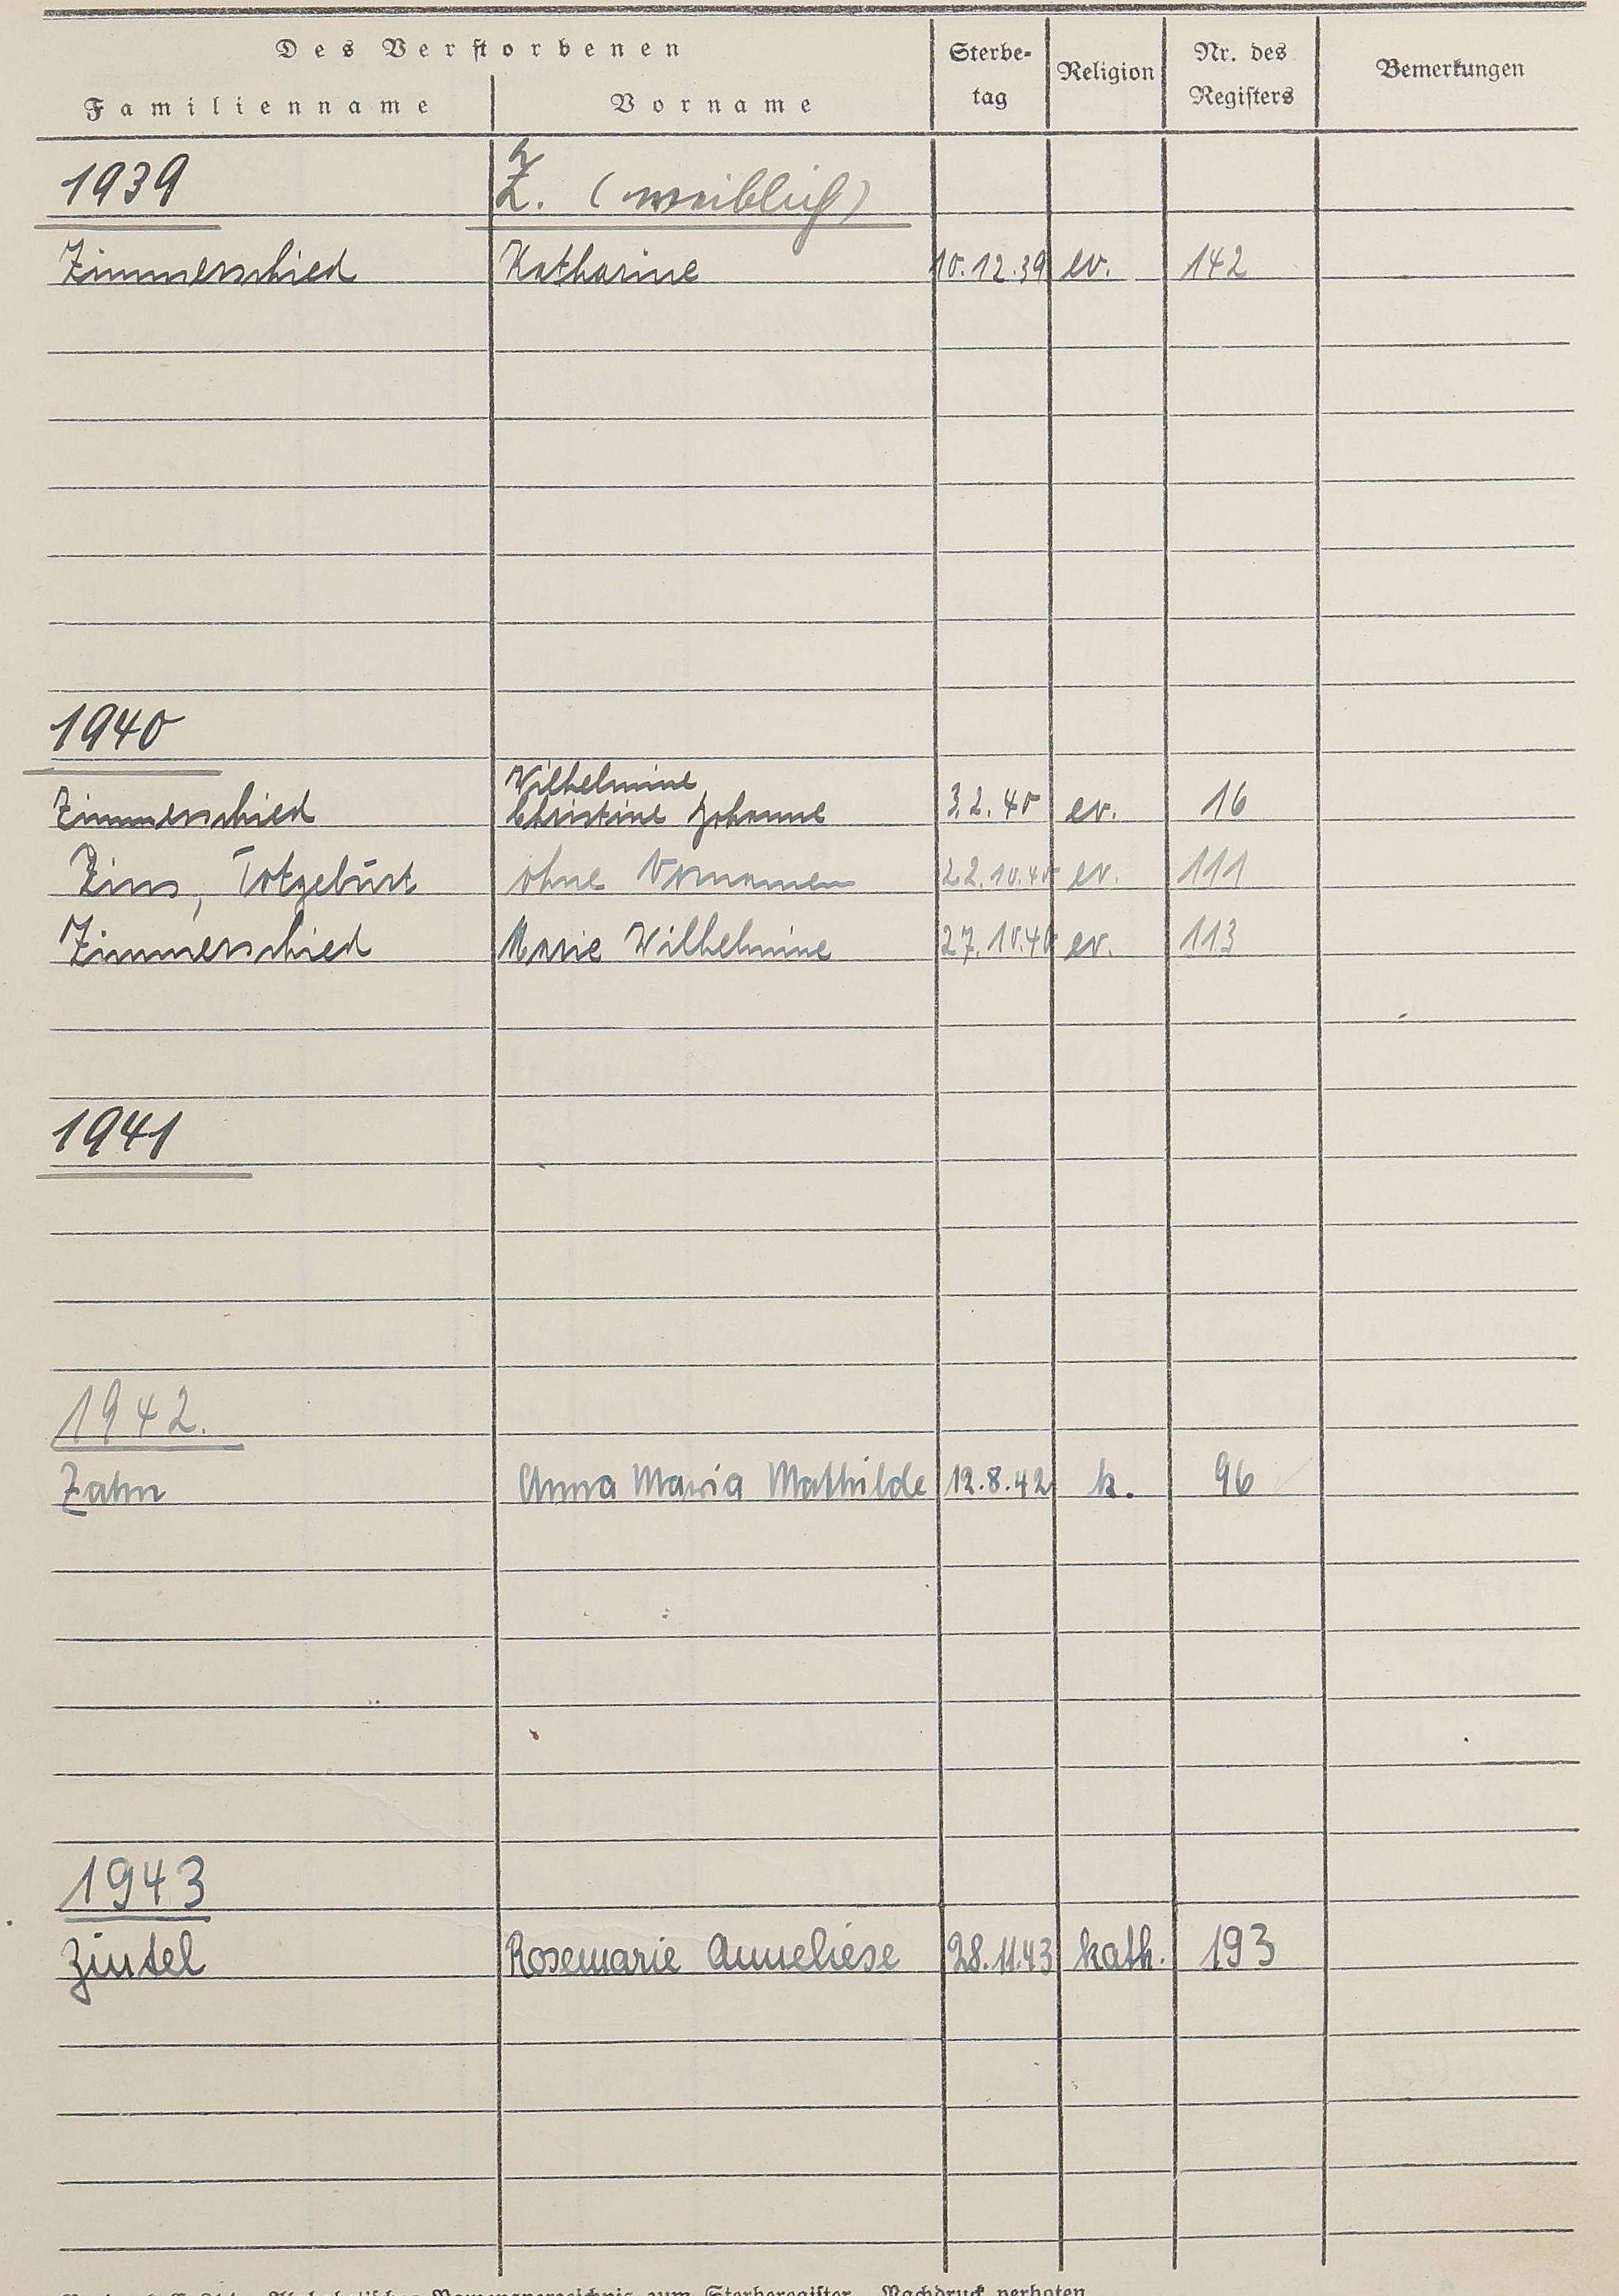 Des Verstorbenen
Familienname Vorname Sterbe-tag Religion Nr. des Registers Bemerkungen
1939 Z. (weiblich)
Zimmerschied Katharine 10.12.39 ev. 142
1940
Wilhelmine
Zimmerschied Christine Johanne 3.2.40 ev. 16
Zins, Totgeburt ohne Vornamen 22.10.40 ev. 111
Zimmerschied Marie Wilhelmine 27.10.40 ev. 113
1941
1942.
Zahn Anna Maria Mathilde 12.8.42 k. 96
1943
Zintel Rosemarie Anneliese 28.11.43 kath. 193
Namensverzeichnis zum Sterberegister. Nachdruck verboten